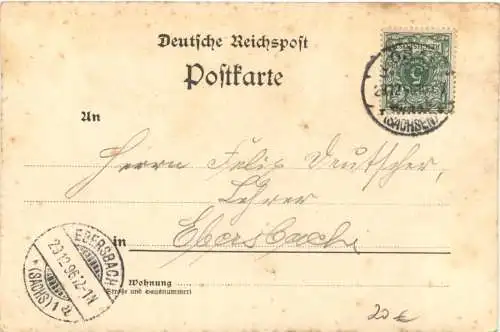 Deutsche Reichspost
Postkarte
An
Herrn Felix Deutscher,
Lehrer
in Ebersbach
Wohnung
(Straße und Hausnummer)
5
23.12.96
(SACHSEN)
EBERSBACH
23.12.96.12-1N
* (SACHS) 1 d
20 €